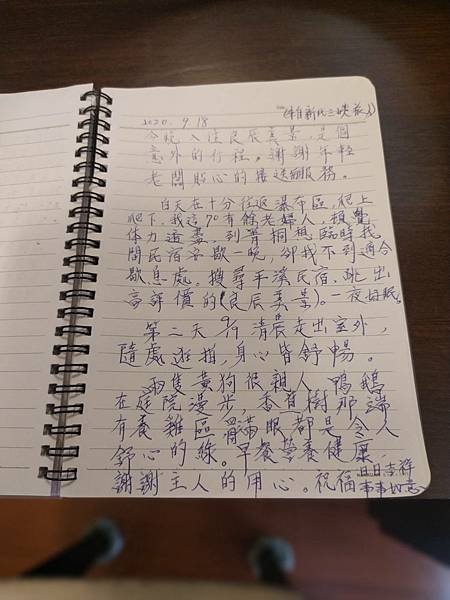 2020. 9. 18 (來自新北三峽旅人)
今晚入住良辰美景,是個
意外的行程。謝謝年輕
老闆貼心的接送服務。
白天在十分往返瀑布區,爬上
爬下,我這70有餘老婦人,頓覺
體力透盡,到菁桐想臨時找
間民宿安歇一晚,卻找不到適合
歇息處。搜尋平溪民宿,跳出
高評價的(良辰美景)。一夜好眠。
第二天9/19清晨走出室外,
隨處逛拍,身心皆舒暢。
兩隻黃狗很親人,鴨鵝
在庭院漫步,香草樹那端
有養雞區,滿眼都是令人
舒心的綠。早餐營養健康,
謝謝主人的用心。祝福日日吉祥
事事如意